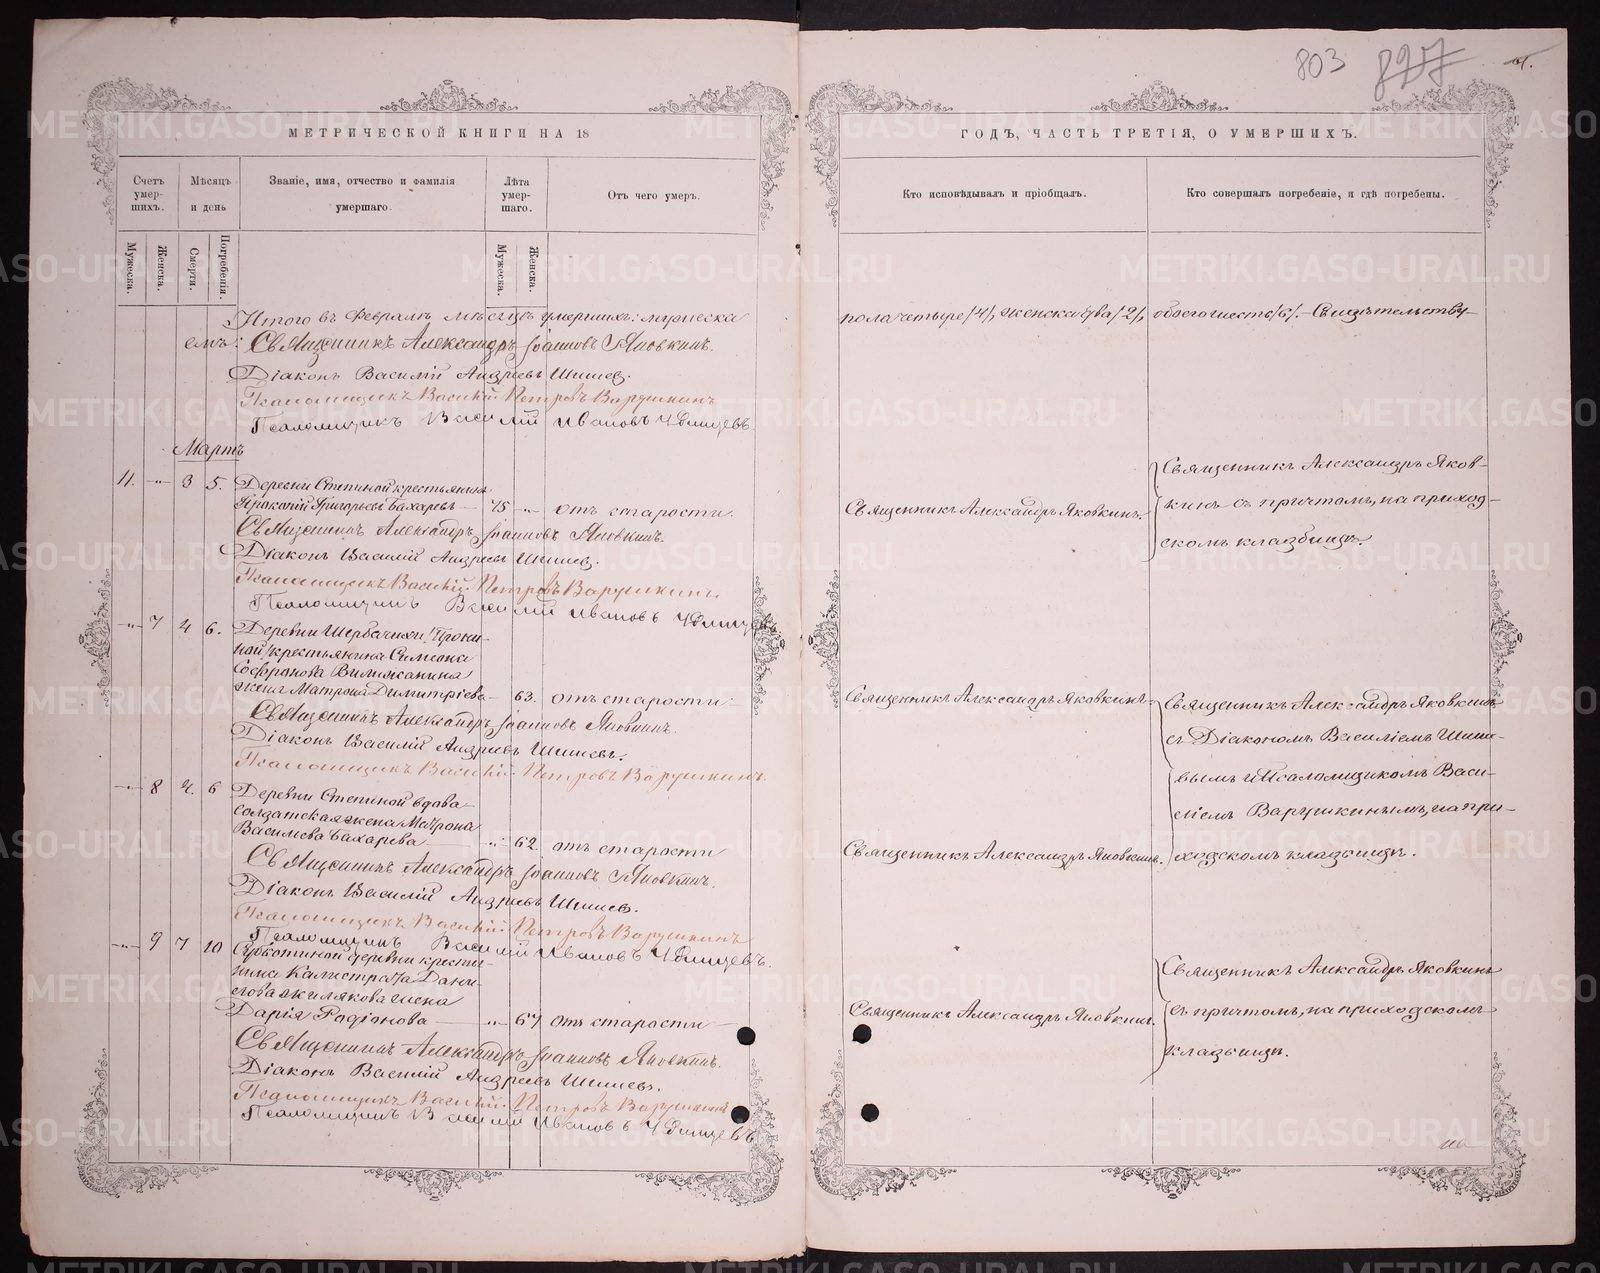 803 827
МЕТРИЧЕСКОЙ КНИГИ НА 18
ГОДЪ, ЧАСТЬ ТРЕТІЯ, О УМЕРШИХЪ.
Счетъ умер-шихъ.
Мѣсяцъ и день
Званіе, имя, отчество и фамилія умершаго.
Лѣта умер-шаго.
Отъ чего умеръ.
Кто исповѣдывалъ и пріобщалъ.
Кто совершалъ погребеніе, и гдѣ погребены.
Мужеска.
Женска.
Смерти.
Погребенія.
Мужеска.
Женска.
Итого въ Февралѣ мѣсяцѣ умершихъ: мужеска
пола четыре /4/, женска два /2/, обоего шесть /6/. – Свидѣтельству-
емъ: Священникъ Александръ Іоанновъ Яковкинъ.
Діаконъ Василій Андреевъ Шишевъ.
Псаломщикъ Василій Петровъ Варушкинъ
Псаломщикъ Василій Ивановъ
Мартъ
11. -"- 3 5. Деревни Степиной крестьянинъ
Прокопій Григорьевъ Бахаревъ 75 -"- отъ старости.
Священникъ Александръ Яковкинъ.
Священникъ Александръ Яков-
кинъ съ причтомъ, на приход-
скомъ кладбищѣ.
Священникъ Александръ Іоанновъ Яковкинъ.
Діаконъ Василій Андреевъ Шишевъ.
Псаломщикъ Василій Петровъ Варушкинъ.
Псаломщикъ Василій Ивановъ
-"- 7 4 6. Деревни Щербачихи /Прони-
ной/ крестьянина Симеона
Софронова Вилижанина
жена Матрона Димитріева 63. отъ старости.
Священникъ Александръ Яковкинъ.
Священникъ Александръ Яковкинъ
съ Діакономъ Василіемъ Шише-
вымъ и Псаломщикомъ Васи-
ліемъ Варушкинымъ, на при-
ходскомъ кладбищѣ.
Священникъ Александръ Іоанновъ Яковкинъ.
Діаконъ Василій Андреевъ Шишевъ.
Псаломщикъ Василій Петровъ Варушкинъ.
-"- 8 4. 6 Деревни Степиной вдова
солдатская жена Матрона
Васильева Бахарева -"- 62 отъ старости
Священникъ Александръ Яковкинъ.
Священникъ Александръ Іоанновъ Яковкинъ.
Діаконъ Василій Андреевъ Шишевъ.
Псаломщикъ Василій Петровъ Варушкинъ
Псаломщикъ Василій Ивановъ
-"- 9 7 10 деревни кресть-
янина Калистрата Дани-
лова Жилякова жена
Дарія Родіонова -"- 67 отъ старости
Священникъ Александръ Яковкинъ.
Священникъ Александръ Яковкинъ
съ причтомъ, на приходскомъ
кладбищѣ.
Священникъ Александръ Іоанновъ Яковкинъ.
Діаконъ Василій Андреевъ Шишевъ.
Псаломщикъ Василій Петровъ Варушкинъ
Псаломщикъ Василій Ивановъ
METRIKI.GASO-URAL.RU